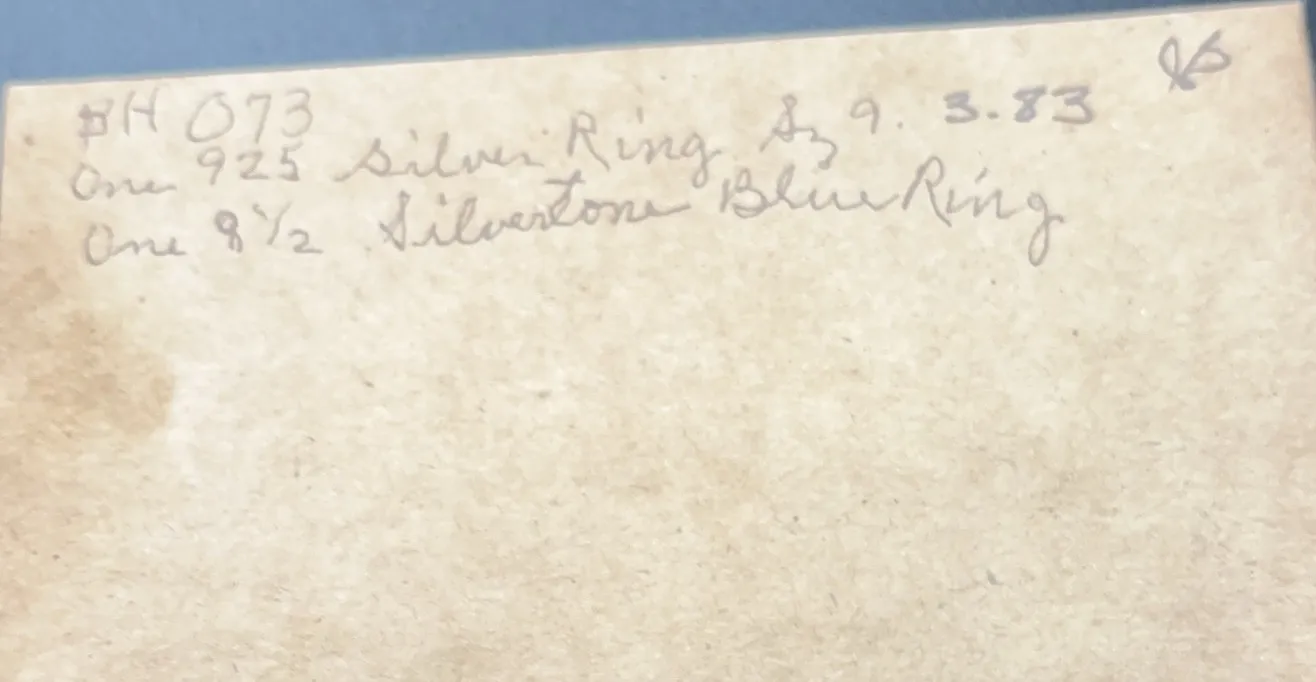 H 073
One 925 silver Ring Sz 9. 3.83
One 8 1/2 Silvertone Blue Ring